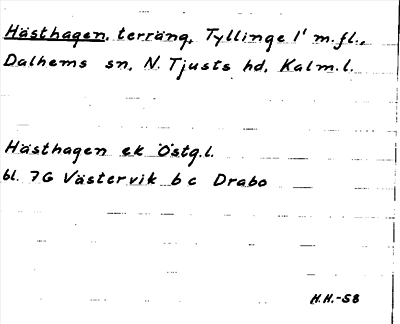 Hästhagen, terräng, Tyllinge 1' m.fl.,
Dalhems sn, N. Tjusts hd, Kalm.l.
Hästhagen ek Östg.l.
bl. 7G Västervik b c Drabo
H.H.-58